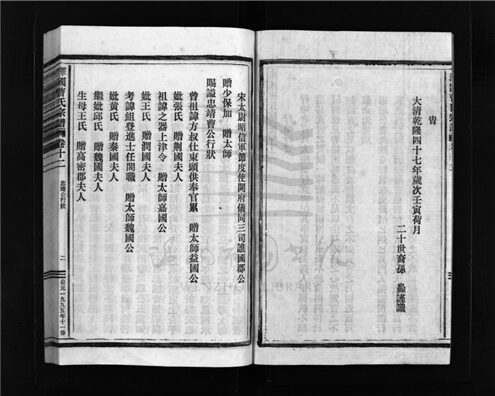 旹
大清乾隆四十七年歲次壬寅荷月
二十世裔孫 謹識
宋太尉昭信軍節度使開府儀同三司譙國郡公
贈少保加 贈太師
賜謚忠靖曹公行狀
曾祖諱方叔仕東頭供奉官累 贈太師益國公
妣張氏 贈荆國夫人
祖諱之器上津令 贈太師嘉國公
妣王氏 贈潤國夫人
考諱組登進士任閤職 贈太師魏國公
妣黄氏 贈秦國夫人
繼妣邱氏 贈魏國夫人
生母王氏 贈高密郡夫人
曹氏宗譜 卷十二 忠靖公行狀 二 公元一九九五年十一修